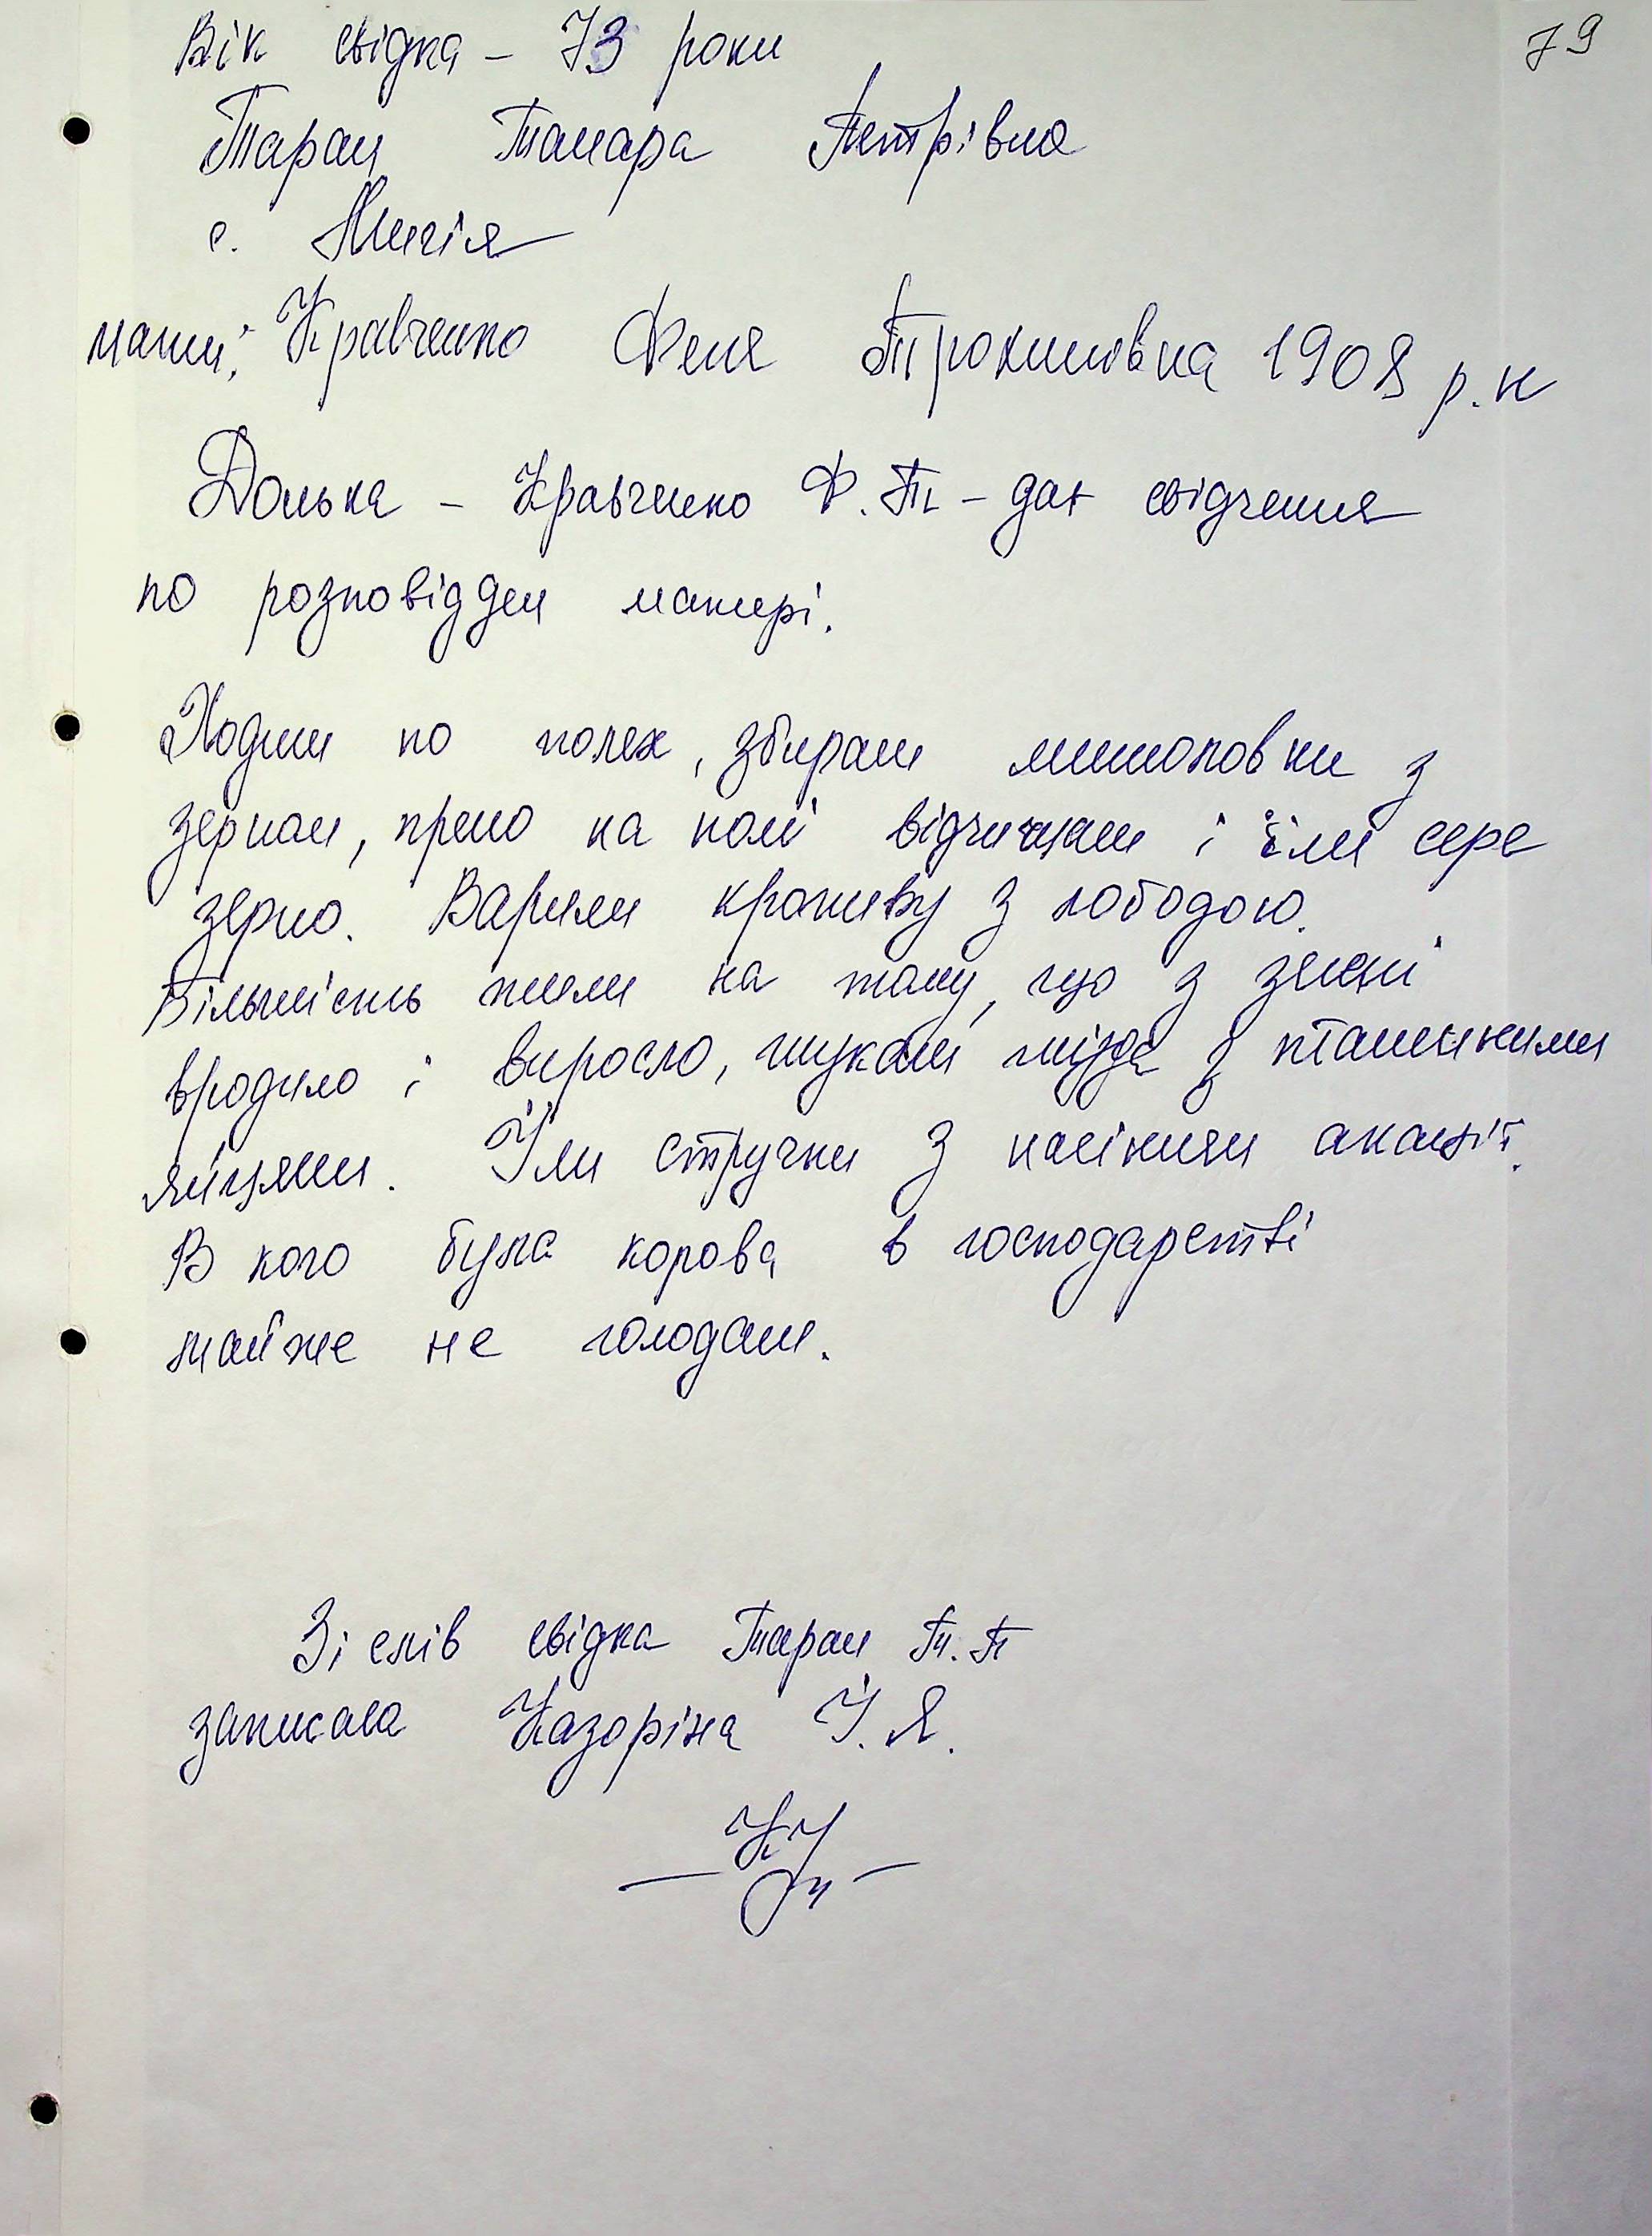 79
Вік свідка – 73 роки
Таран Тамара Петрівна
с. Мигія
мати: Кравченко Феня Трохимовна 1908 р.н
Донька – Кравченко Ф.Т – дає свідчення
по розповідям матері.
Ходили по полях, збирали мишоловки з
зерном, прямо на полі відчищали і їли сире
зерно. Варили кропиву з лободою.
Більшість жили на тому, що з землі
вродило і виросло, шукали гнізда з пташиними
яйцями. Їли стручки з насінням акації.
В кого була корова в господарстві
майже не голодали.
Зі слів свідка Таран Т.П
записала Казоріна І. Я.